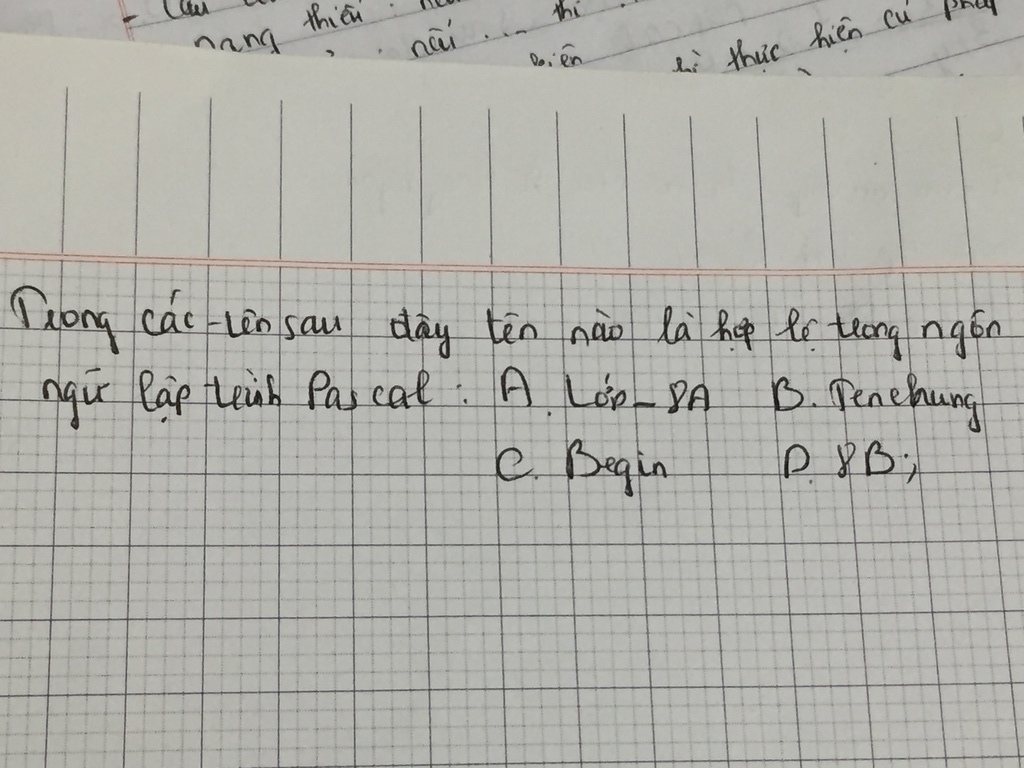 nang thiếu
nếu ... thì
thực hiện cú pháp
Trong các tên sau đây tên nào là hợp lệ trong ngôn
ngữ lập trình Pascal : A. Lớp_8A B. Tenchung
C. Begin D. 8B;